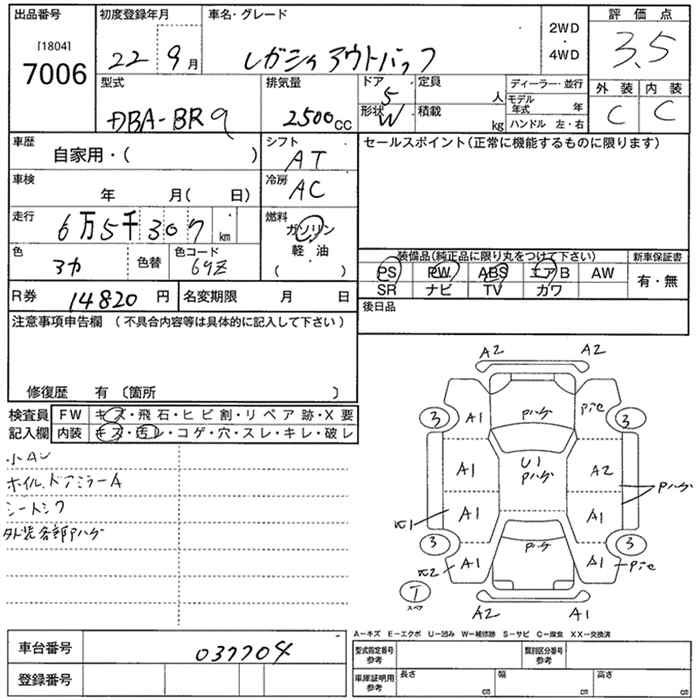 出品番号
[1804]
7006
初度登録年月
22 9月
車名・グレード
レガシィアウトバック
2WD
・
4WD
評価点
3.5
外装 内装
C C
型式
DBA-BR9
排気量
2500cc
ドア
5
形状
W
定員
人
積載
kg
ディーラー・並行
モデル年式 年
ハンドル 左・右
車歴
自家用・( )
シフト
AT
車検
年 月( 日)
冷房
AC
走行
6万5千307 km
燃料
ガソリン
軽油
( )
色
色替
色コード
R券
14820円
名変期限 月 日
セールスポイント(正常に機能するものに限ります)
装備品(純正品に限り丸をつけて下さい)
PS PW ABS エアB AW
SR ナビ TV カワ
新車保証書
有・無
後日品
注意事項申告欄 (不具合内容等は具体的に記入して下さい)
修復歴 有 〔箇所 〕
検査員
記入欄
FW キズ・飛石・ヒビ割・リペア跡・X要
内装 キズ・汚レ・コゲ・穴・スレ・キレ・破レ
ホイル、ドアミラーA
外装各部Pハゲ
A2 A2
3 A1 Pハゲ 3
A1 U1 Pハゲ A2 Pハゲ
A1 A1
3 A1 Pハゲ A1 3
T
スペア
A2 A1
A-キズ E-エクボ U-凹み W-補修跡 S-サビ C-腐食 XX-交換済
車台番号
037704
登録番号
型式指定番号
参考
類別区分番号
参考
車庫証明用
参考
長さ cm
幅 cm
高さ cm